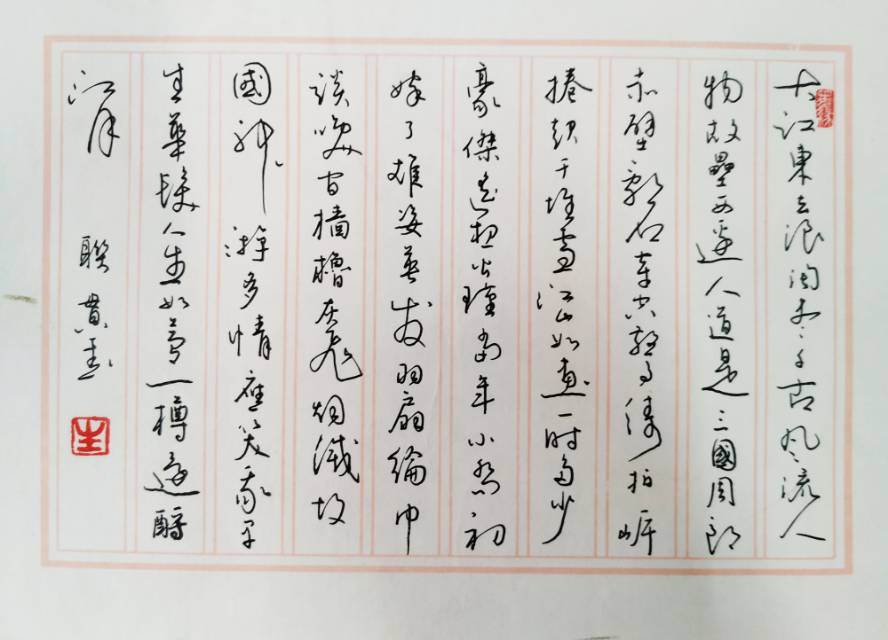 大江東去浪淘盡千古風流人
物故壘西邊人道是三國周郎
赤壁亂石穿空驚濤拍岸
捲起千堆雪江山如畫一時多少
豪傑遙想公瑾當年小喬初
嫁了雄姿英發羽扇綸巾
談笑間檣櫓灰飛烟滅故
國神游多情應笑我早
生華髮人生如夢一樽還酹
江月
聯貴書
生